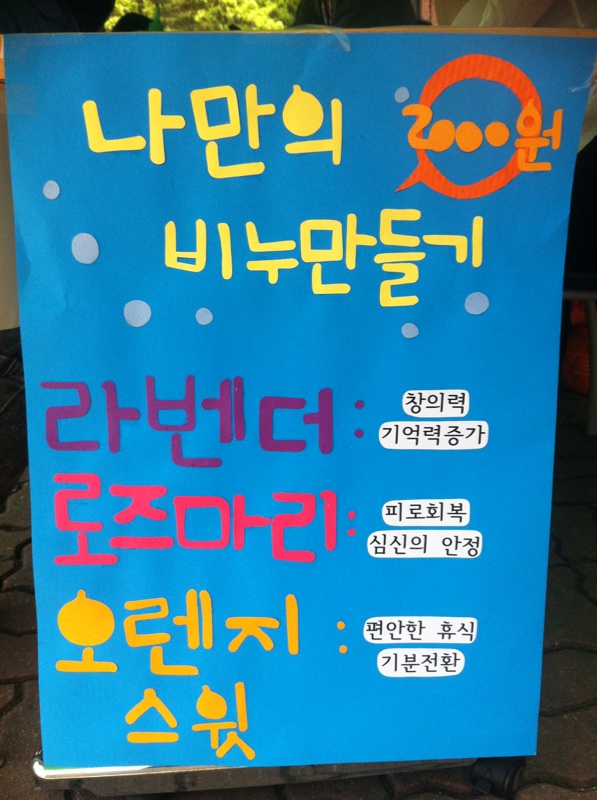 나만의 2000원
비누만들기
라벤더 : 창의력
기억력증가
로즈마리 : 피로회복
심신의 안정
오렌지 : 편안한 휴식
기분전환
스윗